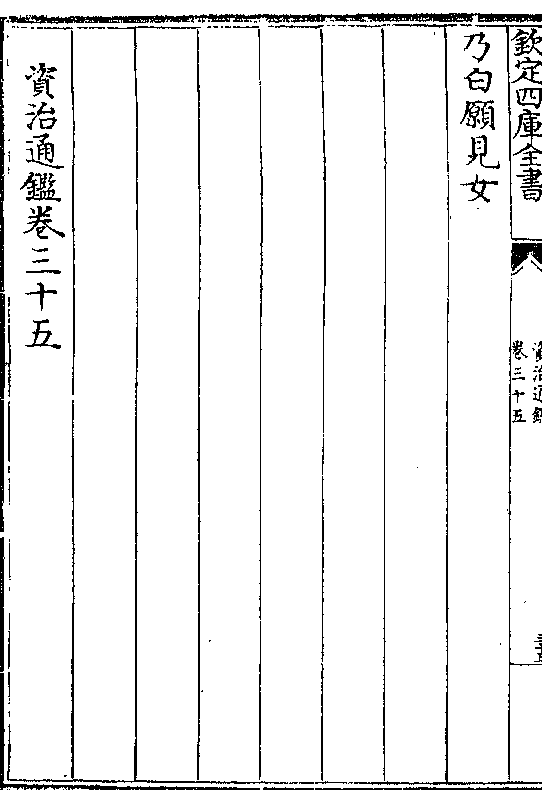 欽定四庫全書
資治通鑑
卷三十五
乃白願見女
資治通鑑卷三十五